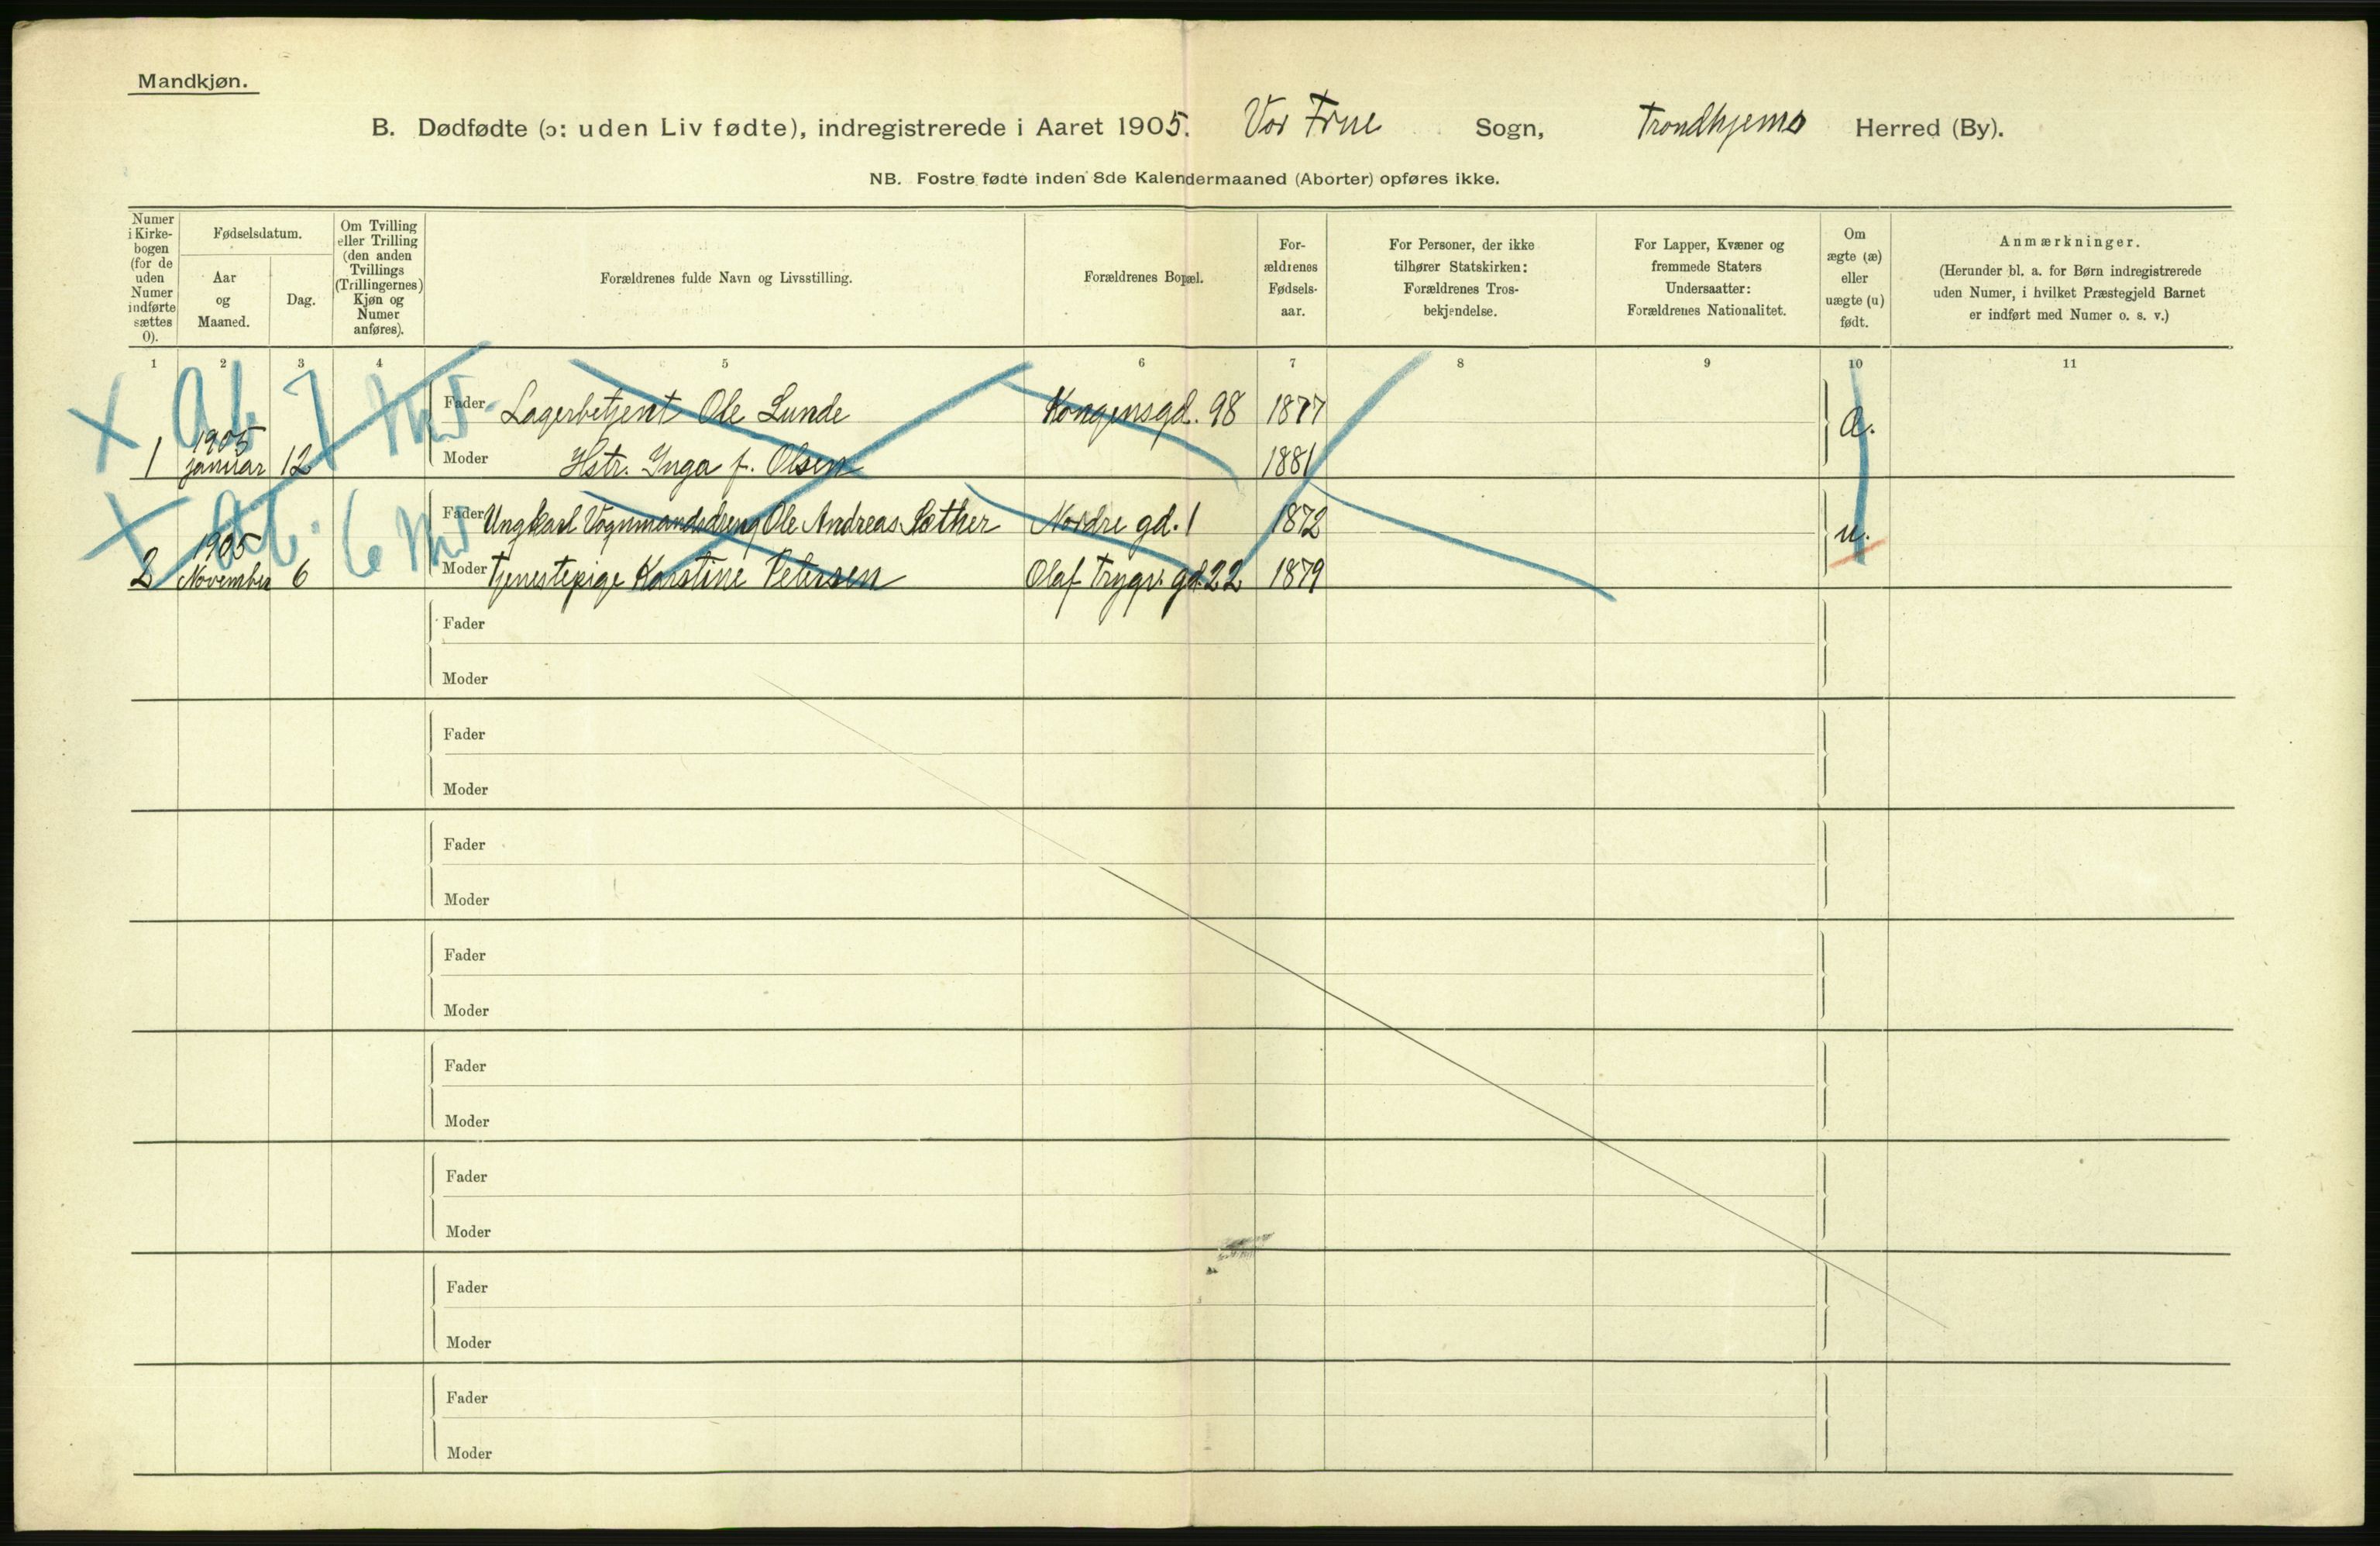 Mandkjøn.
B. Dødfødte (ɔ: uden Liv fødte), indregistrerede i Aaret 1905. Vor Frue Sogn, Trondhjems Herred (By).
NB. Fostre fødte inden 8de Kalendermaaned (Aborter) opføres ikke.
Numer
i Kirke-
bogen
(for de
uden
Numer
indførte
sættes
0).
Fødselsdatum.
Aar
og
Maaned.
Dag.
Om Tvilling
eller Trilling
(den anden
Tvillings
(Trillingernes)
Kjøn og
Numer
anføres).
Forældrenes fulde Navn og Livsstilling.
Forældrenes Bopæl.
For-
ældrenes
Fødsels-
aar.
For Personer, der ikke
tilhører Statskirken:
Forældrenes Tros-
bekjendelse.
For Lapper, Kvæner og
fremmede Staters
Undersaatter:
Forældrenes Nationalitet.
Om
ægte (æ)
eller
uægte (u)
født.
Anmærkninger.
(Herunder bl. a. for Børn indregistrerede
uden Numer, i hvilket Præstegjeld Barnet
er indført med Numer o. s. v.)
1 2 3 4 5 6 7 8 9 10 11
Fader Lagerbetjent Ole Lunde Kongensgd. 98 1877
1 1905 januar 12 Moder Hstr. Inga f. Olsen 1881
Fader Ungkarl Vognmandsdreng Ole Andreas Sæther Nordre gd. 1 1872 u.
2 1905 November 6 Moder Tjenestepige Karstine Petersen Olaf Trygv. gd. 22 1879
Fader
Moder
Fader
Moder
Fader
Moder
Fader
Moder
Fader
Moder
Fader
Moder
Fader
Moder
Fader
Moder